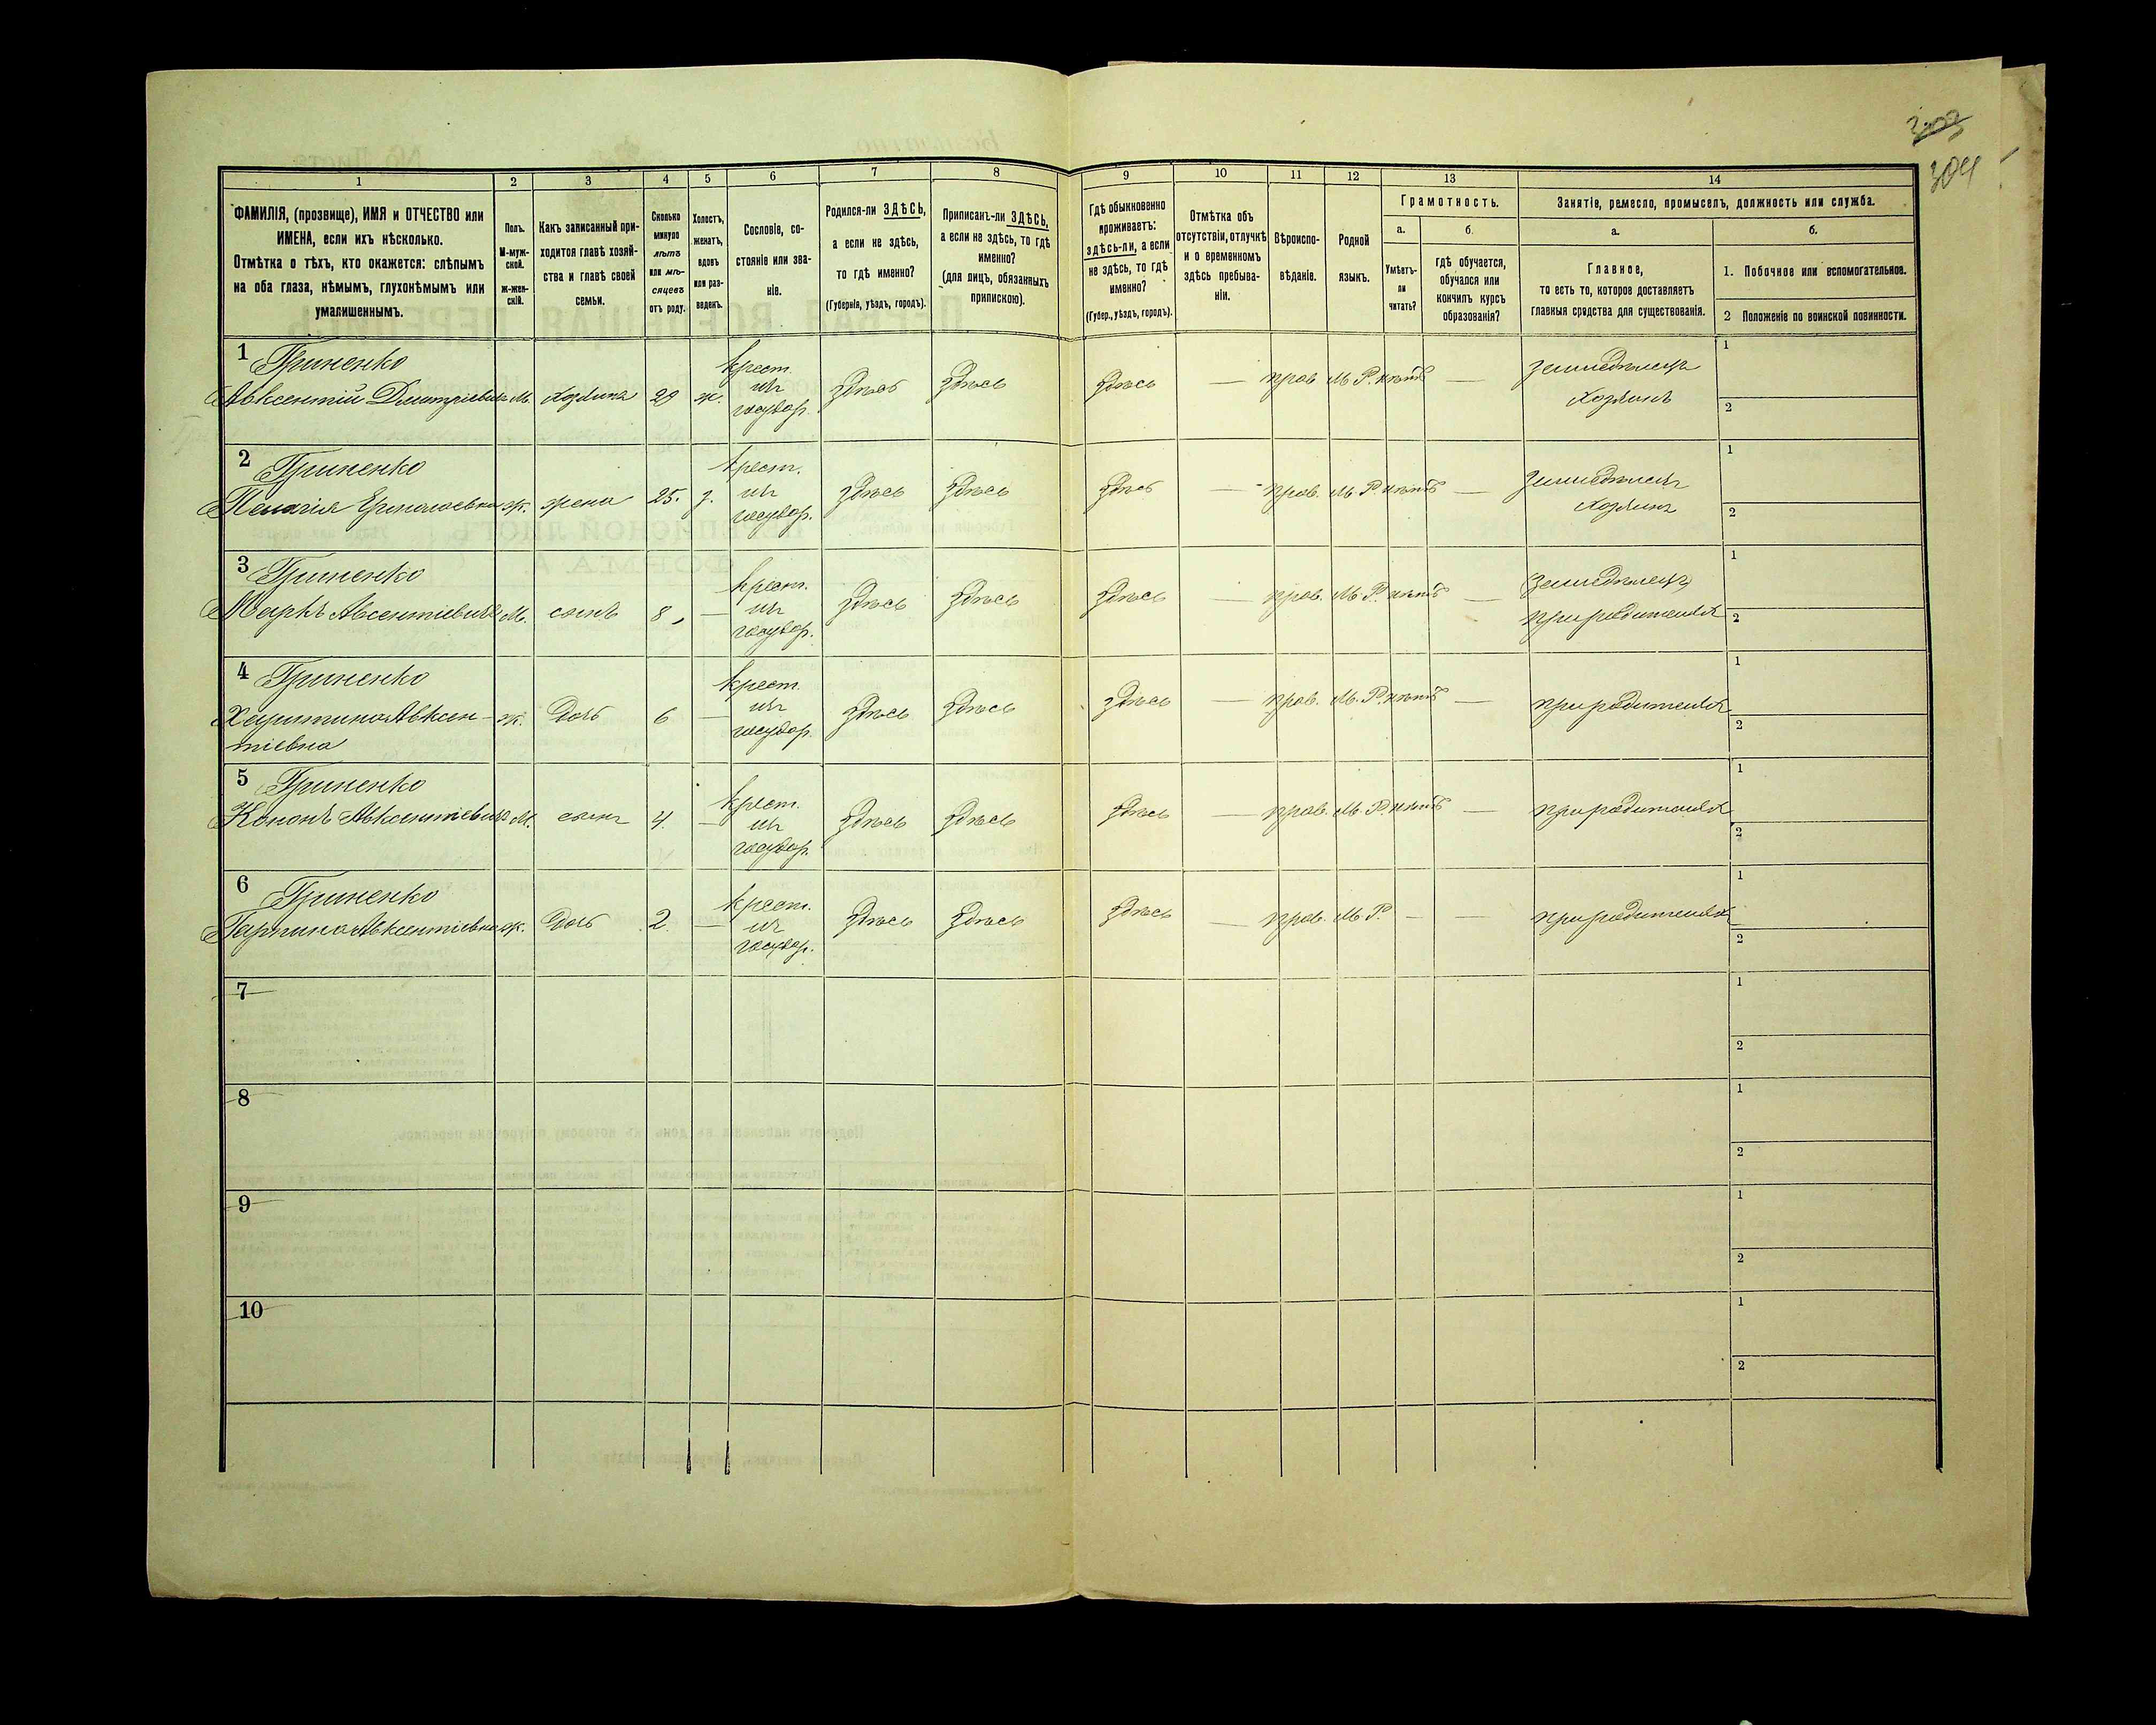 303
304
1 2 3 4 5 6 7 8 9 10 11 12 13 14
ФАМИЛІЯ, (прозвище), ИМЯ и ОТЧЕСТВО или
ИМЕНА, если ихъ нѣсколько.
Отмѣтка о тѣхъ, кто окажется: слѣпымъ
на оба глаза, нѣмымъ, глухонѣмымъ или
умалишеннымъ.
Полъ.
М-муж-
ской.
ж-жен-
скій.
Какъ записанный при-
ходится главѣ хозяй-
ства и главѣ своей
семьи.
Сколько
минуло
лѣтъ
или мѣ-
сяцевъ
отъ роду.
Холостъ,
женатъ,
вдовъ
или раз-
веденъ.
Сословіе, со-
стояніе или зва-
ніе.
Родился-ли ЗДѢСЬ,
а если не здѣсь,
то гдѣ именно?
(Губернія, уѣздъ, городъ).
Приписанъ-ли ЗДѢСЬ,
а если не здѣсь, то гдѣ
именно?
(для лицъ, обязанныхъ
припискою).
Гдѣ обыкновенно
проживаетъ:
здѣсь-ли, а если
не здѣсь, то гдѣ
именно?
(Губер., уѣздъ, городъ).
Отмѣтка объ
отсутствіи, отлучкѣ
и о временномъ
здѣсь пребыва-
ніи.
Вѣроиспо-
вѣданіе.
Родной
языкъ.
Грамотность.
а.
Умѣетъ-
ли
читать?
б.
гдѣ обучается,
обучался или
кончилъ курсъ
образованія?
Занятіе, ремесло, промыселъ, должность или служба.
а.
Главное,
то есть то, которое доставляетъ
главныя средства для существованія.
б.
1. Побочное или вспомогательное.
2 Положеніе по воинской повинности.
1 Гриненко
Авксентій Дмитріевичъ М. хозяинъ 29 ж. крест. изъ государ. здѣсь здѣсь здѣсь — прав. М. Р. нѣтъ — земледѣлецъ хозяинъ 1 2
2 Гриненко
Пелагія Ермолаевна ж. жена 25. з. крест. изъ государ. здѣсь здѣсь здѣсь — прав. М. Р. нѣтъ — земледѣлец хозяинъ 1 2
3 Гриненко
Маркъ Авсентіевичъ М. сынъ 8, — крест. изъ государ. здѣсь здѣсь здѣсь — прав. М. Р. нѣтъ — (земледѣлец) при родителях 1 2
4 Гриненко
Харитина Авксен-
тіевна ж. дочь 6 — крест. изъ государ. здѣсь здѣсь здѣсь — прав. М. Р. нѣтъ — при родителях 1 2
5 Гриненко
Кононъ Авксентіевичъ М. сынъ 4. — крест. изъ государ. здѣсь здѣсь здѣсь — прав. М. Р. нѣтъ — при родителях 1 2
6 Гриненко
Гарпина Авксентіевна ж. дочь 2. — крест. изъ государ. здѣсь здѣсь здѣсь — прав. М. Р. — — при родителях 1 2
7 1 2
8 1 2
9 1 2
10 1 2